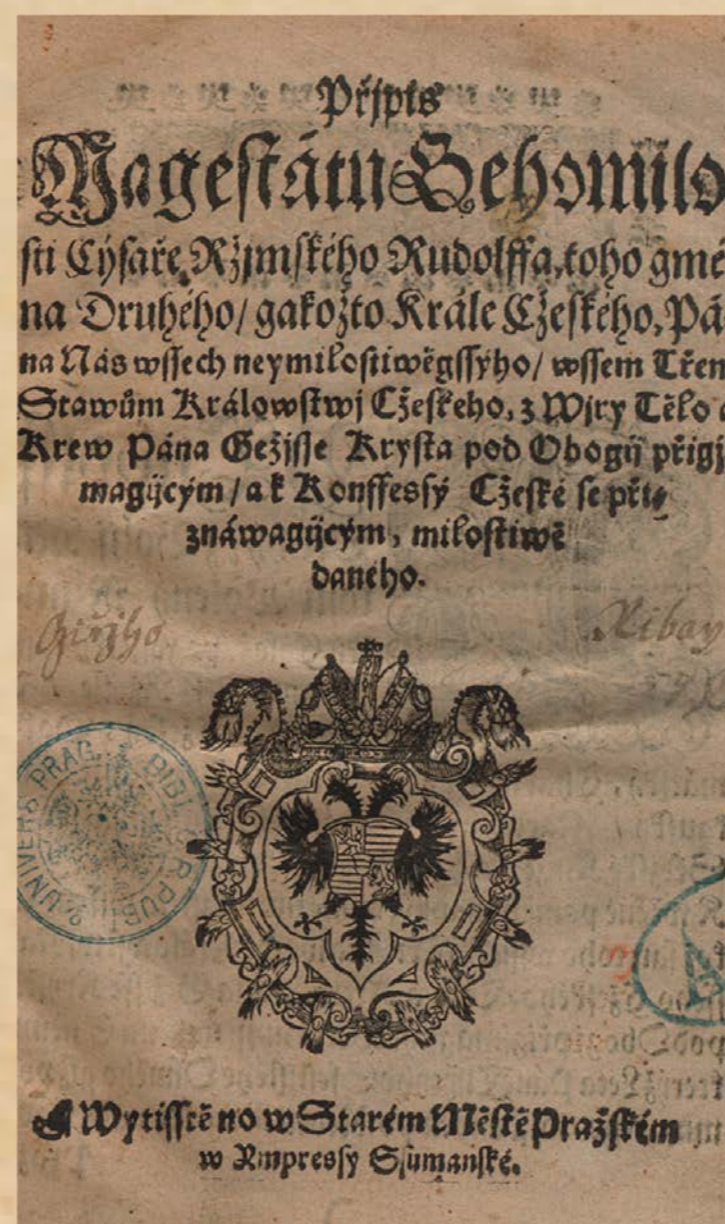 Přjpis
Magestátu Gehomilo
sti Cýsaře Ržjmského Rudolffa, toho gme
na Druhého/ gakožto Krále Cžeského, Pá
na Nás wssech neymilostiwěgssýho/ wssem Třem
Stawům Králowstwj Cžeskeho, z Wjry Tělo a
Krew Pána Gežjsse Krysta pod Obogij přigj
magijcým/ a k Konffessý Cžeské se při⸗
znáwagijcým, milostiwě
daneho.
Giržho Ribay
UNIVERS PRAG BIBL R PUB
Wytisstě no w Starém Městě Pražském
w Impressy Ssumanské.